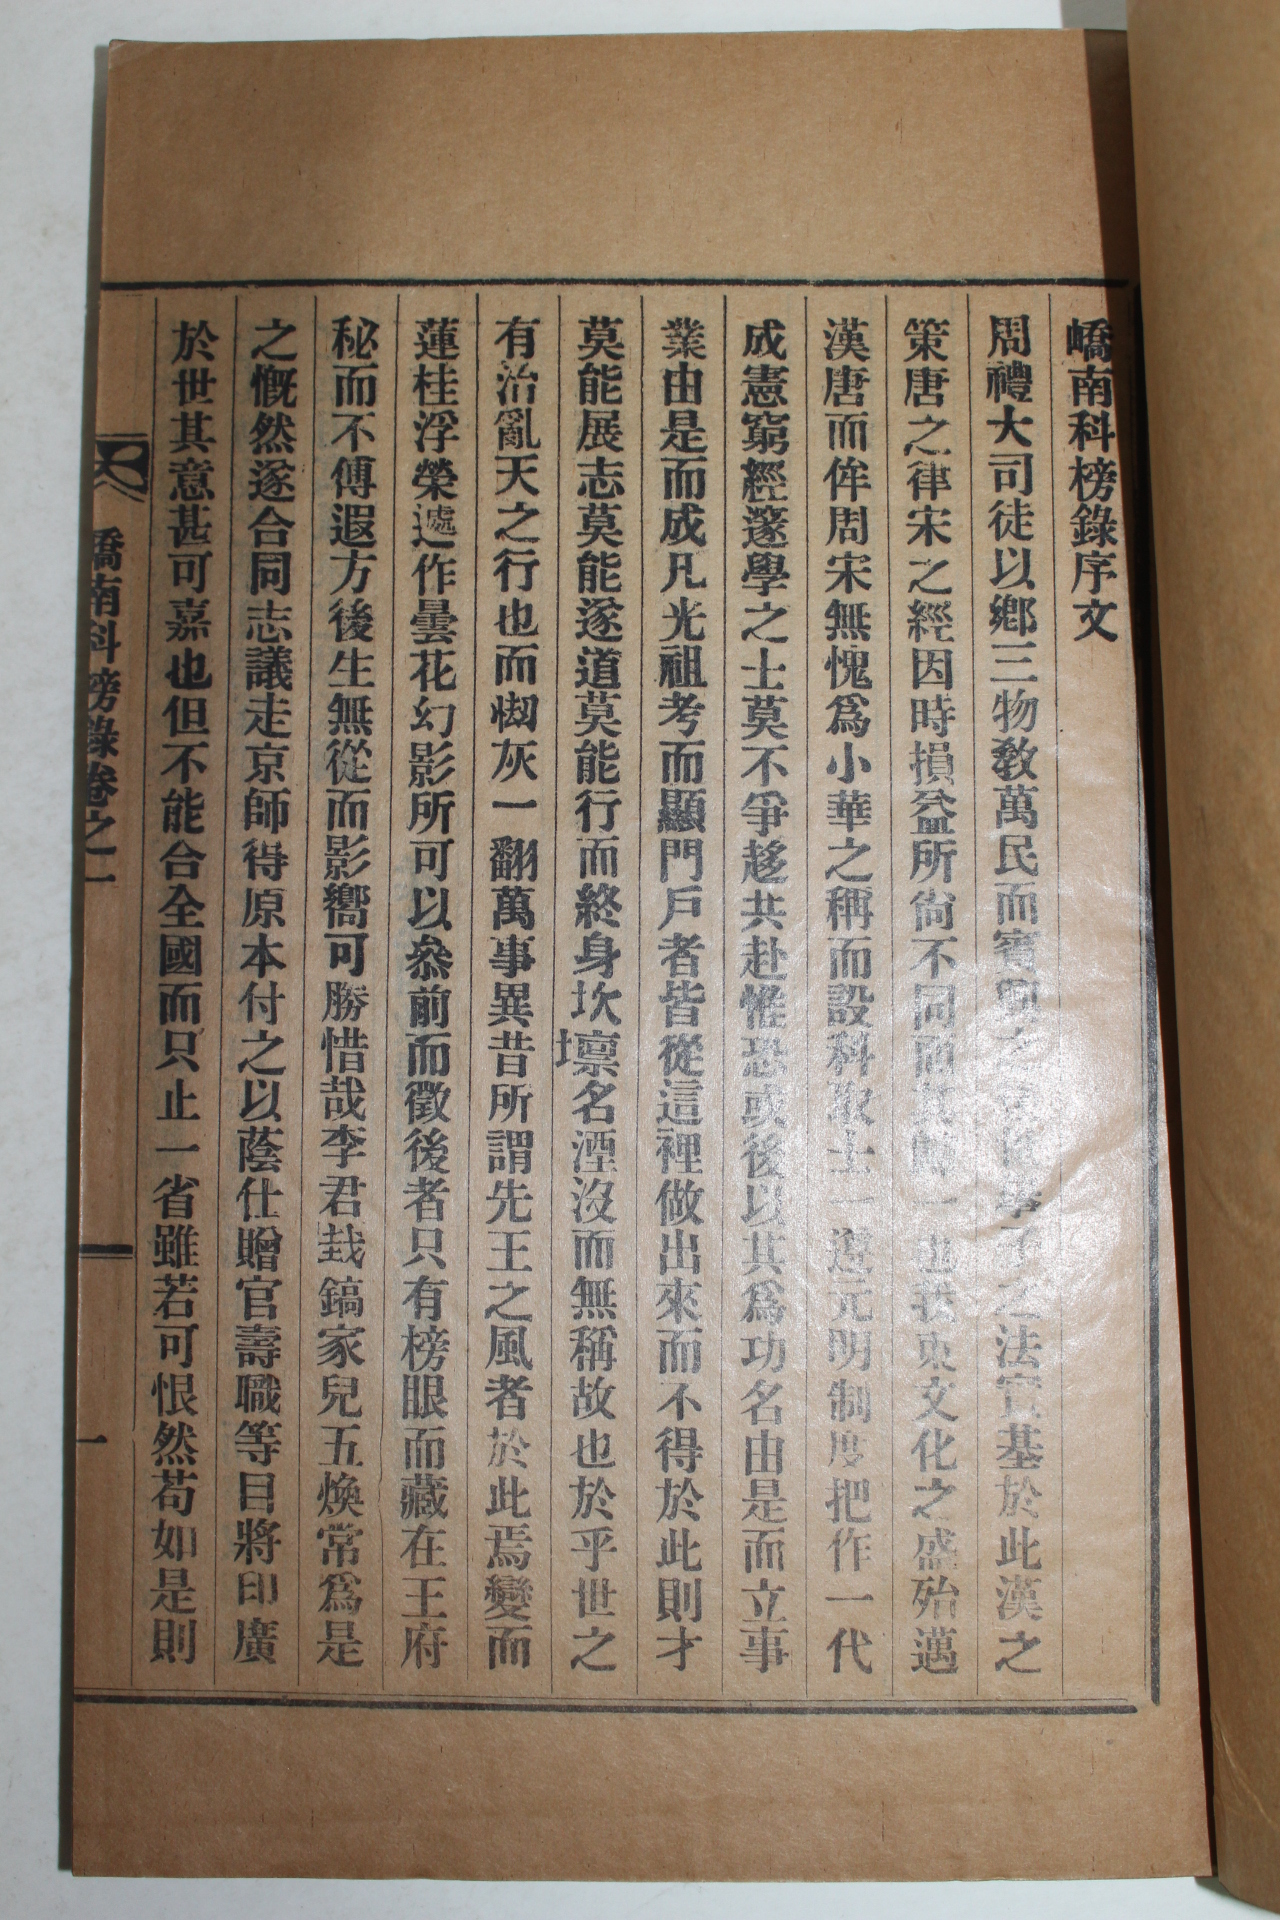 嶠南科榜錄序文
周禮大司徒以鄕三物敎萬民而賓興之法實基於此漢之
策唐之律宋之經因時損益所尙不同而一也我東文化之盛殆邁
漢唐而侔周宋無愧爲小華之稱而設科取士一遵元明制度把作一代
成憲窮經邃學之士莫不爭趍共赴惟恐或後以其爲功名由是而立事
業由是而成凡光祖考而顯門戶者皆從這裡做出來而不得於此則才
莫能展志莫能遂道莫能行而終身坎壈名湮沒而無稱故也於乎世之
有治亂天之行也而刼灰一翻萬事異昔所謂先王之風者於此焉變而
蓮桂浮榮遽作曇花幻影所可以叅前而徵後者只有榜眼而藏在王府
秘而不傅遐方後生無從而影嚮可勝惜哉李君㘽鎬家兒五煥常爲是
之慨然遂合同志議走京師得原本付之以蔭仕贈官壽職等目將印廣
於世其意甚可嘉也但不能合全國而只止一省雖若可恨然苟如是則
嶠南科榜錄卷之一
一